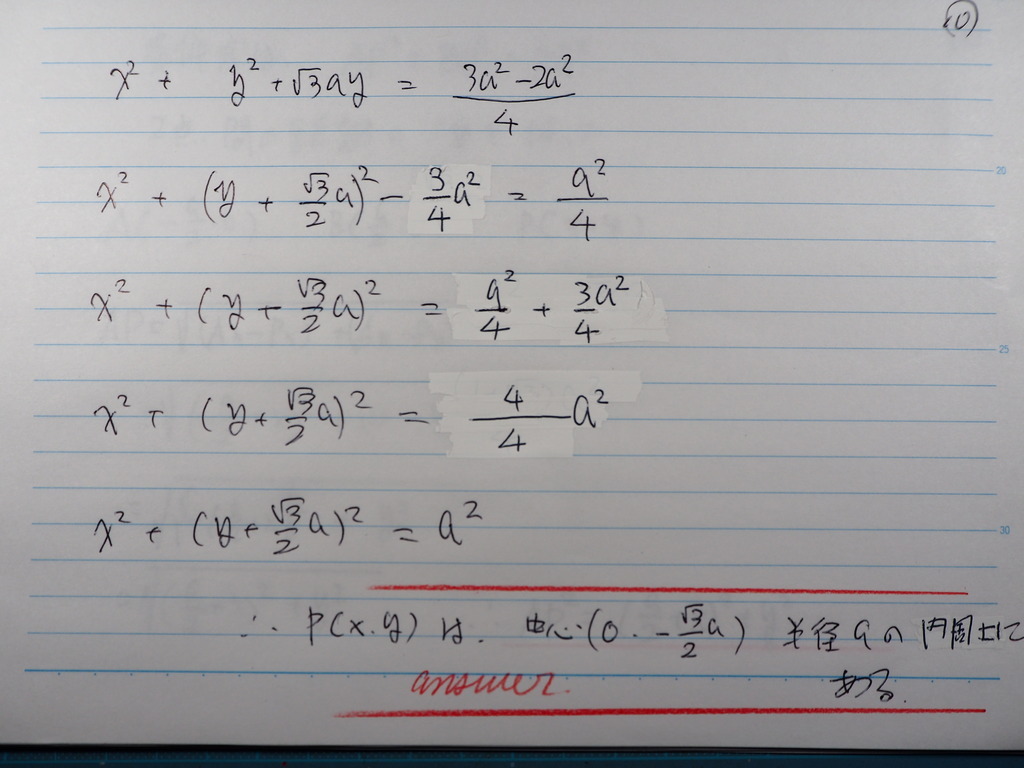 (10)
x² + y² + √3ay = (3a² - 2a²)/4
x² + (y + √3/2 a)² - 3/4 a² = a²/4
20
x² + (y + √3/2 a)² = a²/4 + 3a²/4
25
x² + (y + √3/2 a)² = 4/4 a²
x² + (y + √3/2 a)² = a²
30
∴ P(x.y) は. 中心(0. -√3/2 a) 半径 a の 円周上に
ある.
answer.